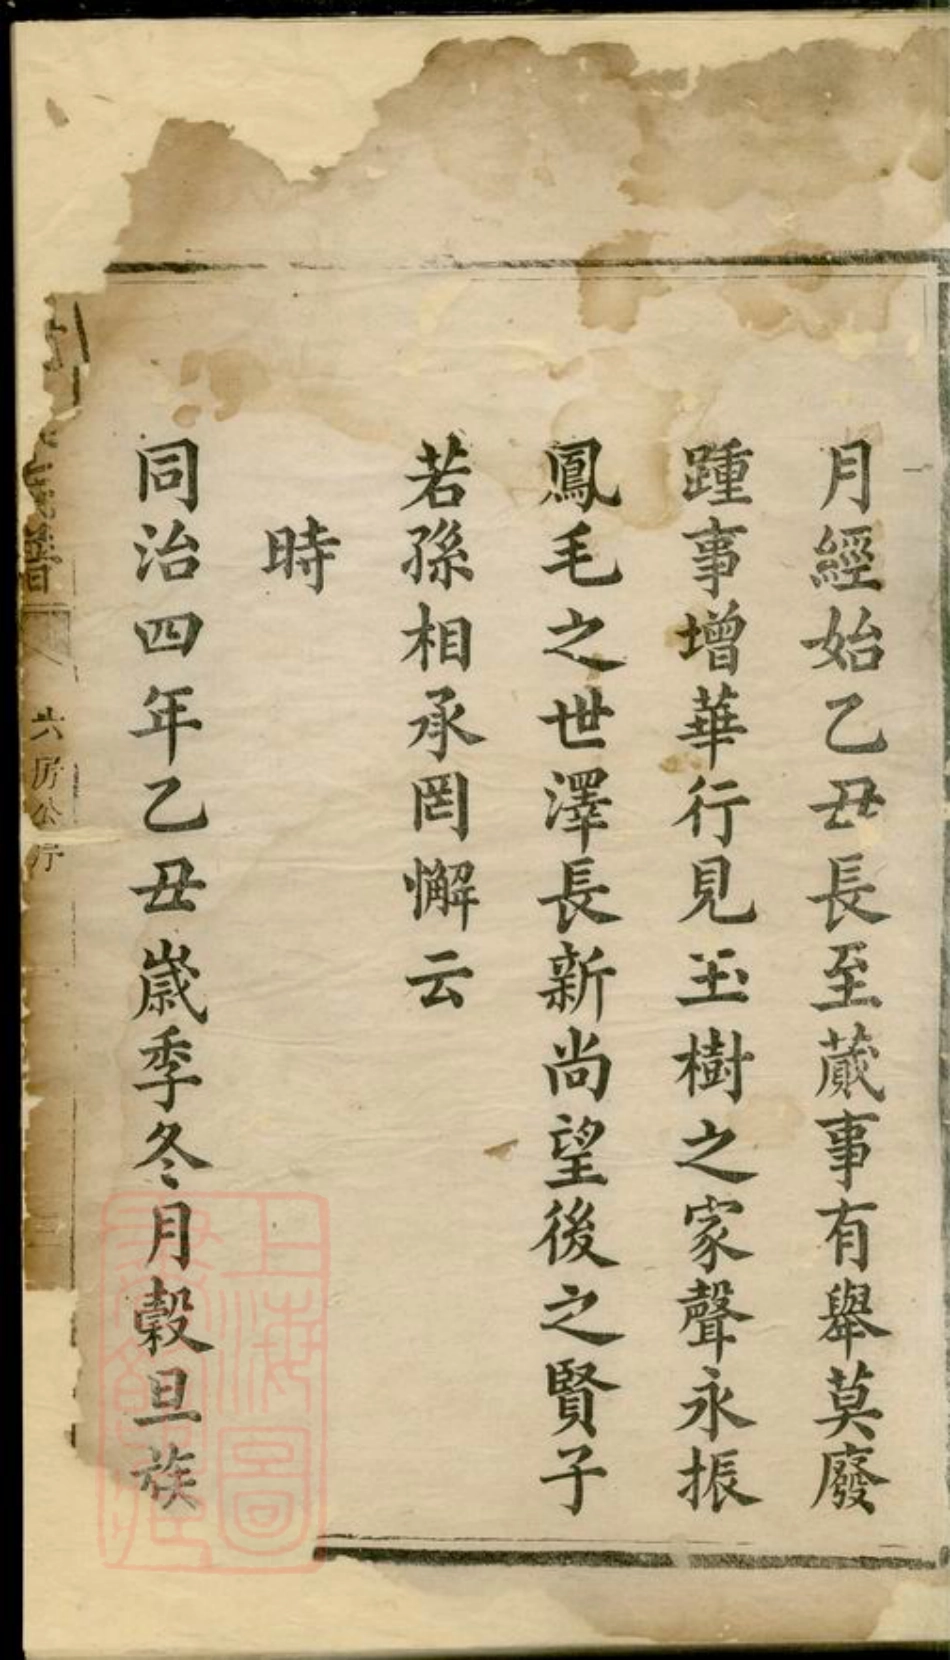 月經始乙丑長至蕆事有舉莫廢
踵事增華行見玉樹之家聲永振
鳳毛之世澤長新尚望後之賢子
若孫相承罔懈云
時
同治四年乙丑歲季冬月穀旦族
譜
六房公行
上海圖
書館藏